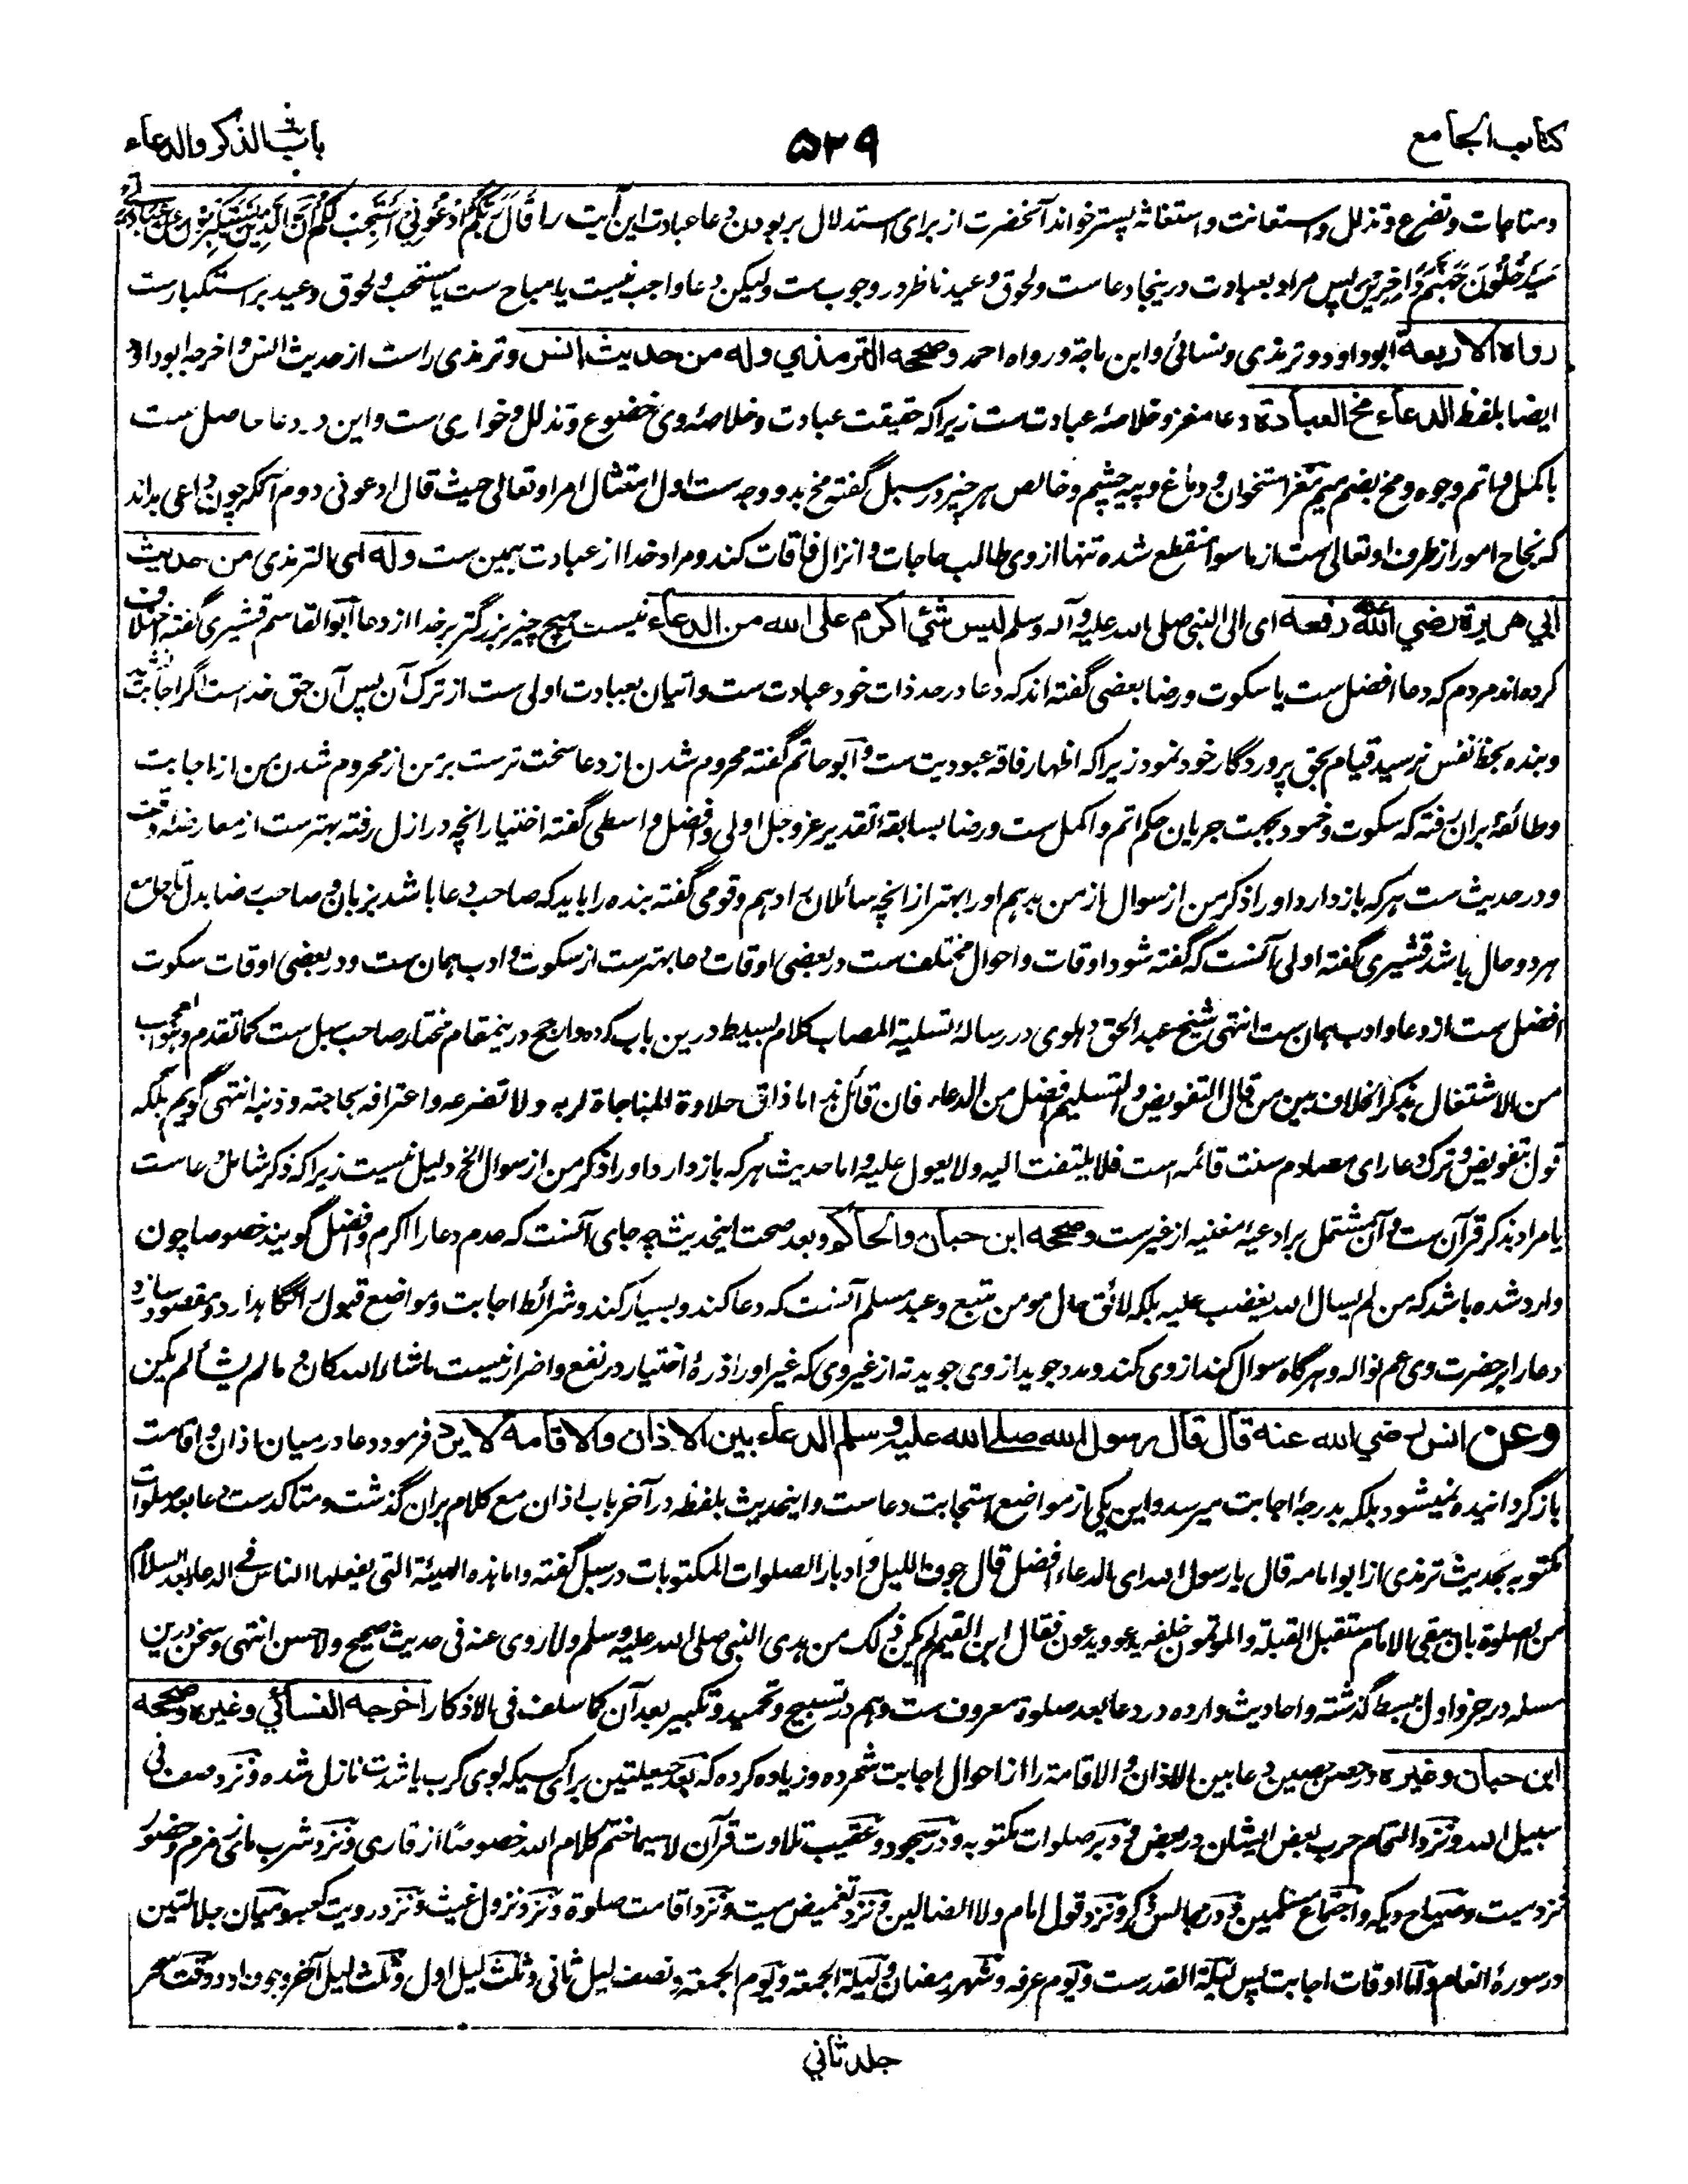 کتاب الجامع
۵۲۹
باب الذکر والدعاء
ومناجات وتضرع وتذلل واستعانت واستغاثه پسترخواند آنحضرت از برای استدلال بر بودن دعا عبادت این آیت را قَالَ رَبُّكُمُ ادْعُونِي أَسْتَجِبْ لَكُمْ إِنَّ الَّذِينَ يَسْتَكْبِرُونَ عَنْ عِبَادَتِي
سَيَدْخُلُونَ جَهَنَّمَ دَاخِرِينَ پس مراد بعبادت درینجا دعا ست ولحوق وعید ناظر در وجوب ست ولیکن دعا واجب نیست یا مباح ست یا مستحب ولحوق وعید بر استکبار ست
رواه الاربعة ابوداود وترمذی ونسائی وابن ماجة ورواه احمد وصححه الترمذي وله من حديث انس وترمذی راست از حدیث انس واخرجه ابوداؤد
ایضا بلفظ الدعاء مخ العبادة دعا مغز وخلاصۂ عبادت ست زیراکه حقیقت عبادت وخلاصۂ وی خضوع وتذلل وخواری ست واین در دعا حاصل ست
باکمل واتم وجوه ومخ بضم میم مغز استخوان ودماغ وپیه چشم وخالص هر چیز در سبل گفته مخ بدو وجه ست اول امتثال امر او تعالی حیث قال ادعونی دوم آنکه چون داعی بداند
که نجاح امور از طرف او تعالی ست از ماسوا منقطع شده تنها از وی طالب حاجات وانزال فاقات کند ومراد خدا از عبادت همین ست وله ای الترمذی من حديث
ابي هريرة رضي الله عنه رفعه ای الی النبی صلی الله علیه وآله وسلم ليس شئ اكرم على الله من الدعاء نیست هیچ چیز بزرگتر بر خدا از دعا ابو القاسم قشیری گفته اختلاف
کرده اند مردم که دعا افضل ست یا سکوت ورضا بعضی گفته اند که دعا در حد ذات خود عبادت ست واتیان بعبادت اولی ست از ترک آن پس آن حق خداست اگر اجابت نشد
وبنده بحظ نفس نرسید قیام بحق پروردگار خود نمود زیراکه اظهار فاقه عبودیت ست وابو حاتم گفته محروم شدن از دعا سخت تر ست بر من از محروم شدن من از اجابت
وطائفه بران رفته که سکوت وخمود بجهت جریان حکم اتم واکمل ست ورضا بسابقۀ تقدیر عز وجل اولی وافضل واسطی گفته اختیار انچه در ازل رفته بهتر ست از معارضۀ وقت
ودر حدیث ست هر که باز دارد او را ذکر من از سوال از من بدهم او را بهتر از انچه سائلان را دهم وقومی گفته بنده را باید که صاحب دعا باشد بزبان وصاحب رضا بدل تا جامع
هر دو حال باشد قشیری گفته اولی آنست که گفته شود اوقات واحوال مختلف ست در بعضی اوقات دعا بهتر ست از سکوت وادب همان ست ودر بعضی اوقات سکوت
افضل ست از دعا وادب همان ست انتهی شیخ عبد الحق دهلوی در رسالۀ تسلیة المصاب کلام بسیط درین باب کرده وارجح درینمقام مختار صاحب سبل ست کما تقدم وهو اعجب
من الاشتغال بذکر الخلاف بین من قال التفویض والتسلیم افضل من الدعاء فان قائل هذا ما ذاق حلاوة المناجاة لربه ولا تضرعه واعترافه بحاجته وذنبه انتهی گویم بلکه
قول بتفویض وترک دعا رای مصادم سنت قائمه است فلا یلتفت الیه ولا یعول علیه واما حدیث هر که باز دارد او را ذکر من از سوال الخ دلیل نیست زیراکه ذکر شامل دعاست
یا مراد بذکر قرآن ست وآن مشتمل بر ادعیۀ مغنیه از غیر ست وصححه ابن حبان والحاكم وبعد صحت اینحدیث چه جای آنست که عدم دعا را اکرم وافضل گویند خصوصا چون
وارد شده باشد که من لم یسال الله یغضب علیه بلکه لائق حال مومن متبع وعبد مسلم آنست که دعا کند وبسیار کند وشرائط اجابت ومواضع قبول را نگاهدارد ومقصود سازد
دعا را بر حضرت وی عم نواله وهر گاه سوال کند از وی کند ومدد جوید از وی جوید نه از غیر وی که غیر او را ذرۀ اختیار در نفع واضرار نیست ما شاء الله کان وما لم یشأ لم یکن
وعن انس رضي الله عنه قال قال رسول الله صلى الله عليه وسلم الدعاء بين الاذان والاقامة لا يرد فرمود دعا در میان اذان واقامت
بازگردانیده نمیشود بلکه بدرجۀ اجابت میرسد واین یکی از مواضع استجابت دعاست واینحدیث بلفظه در آخر باب اذان مع کلام بران گذشت ومتاکد ست دعا بعد صلوات
مکتوبه بحدیث ترمذی از ابو امامه قال یا رسول الله ای الدعاء افضل قال جوف اللیل وادبار الصلوات المکتوبات در سبل گفته واما هذه الهیئة التی یفعلها الناس فی الدعاء بعد السلام
من الصلوة بان یبقی الامام مستقبل القبلة والموتمون خلفه یدعو ویدعون فقال ابن القیم لم یکن ذلک من هدی النبی صلی الله علیه وسلم ولا روی عنه فی حدیث صحیح ولا حسن انتهی وسخن درین
مسله در جزو اول ببسط گذشته واحادیث وارده در دعا بعد صلوة معروف ست وهم در تسبیح وتحمید وتکبیر بعد آن کما سلف فی الاذکار اخرجه النسائي وغيره وصححه
ابن حبان وغيره در حصن حصین دعا بین الاذان والاقامة را از احوال اجابت شمرده وزیاده کرده که بعد حیعلتین برای کسیکه بوی کرب یا شدت نازل شده ونزد صف فی
سبیل الله ونزد التحام حرب بعض ایشان در بعض ودبر صلوات مکتوبه ودر سجود وعقیب تلاوت قرآن لاسیما ختم کلام الله خصوصًا از قاری ونزد شرب مائ زمزم وحضور
نزد میت وصیاح دیکه واجتماع مسلمین ودر مجالس ذکر ونزد قول امام ولا الضالین ونزد تغمیض میت ونزد اقامت صلوة ونزد نزول غیث ونزد رویت کعبه ومیان جلالتین
در سورۀ انعام واما اوقات اجابت پس لیلة القدر ست ویوم عرفه وشهر رمضان ولیلة الجمعة ویوم الجمعة ونصف لیل ثانی وثلث لیل اول وثلث لیل آخر وجوف او ووقت سحر
جلد ثاني